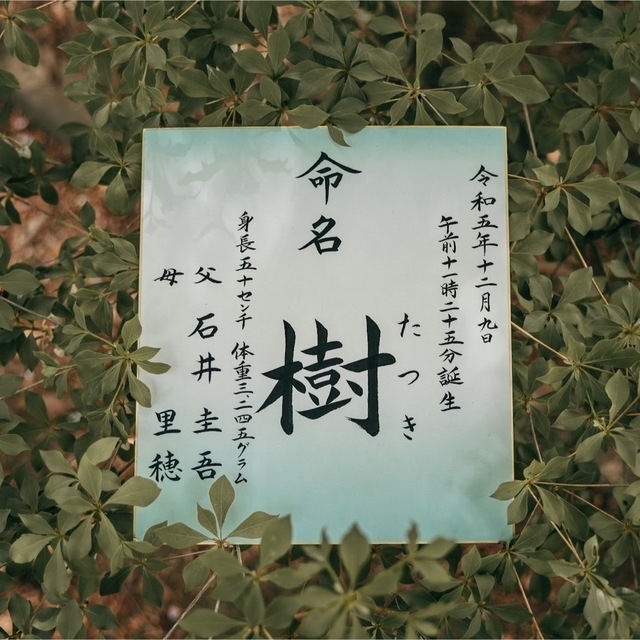 令和五年十二月九日
午前十一時二十五分誕生
命名
樹
たつき
身長五十センチ 体重三、二四五グラム
父 石井 圭吾
母 里穂